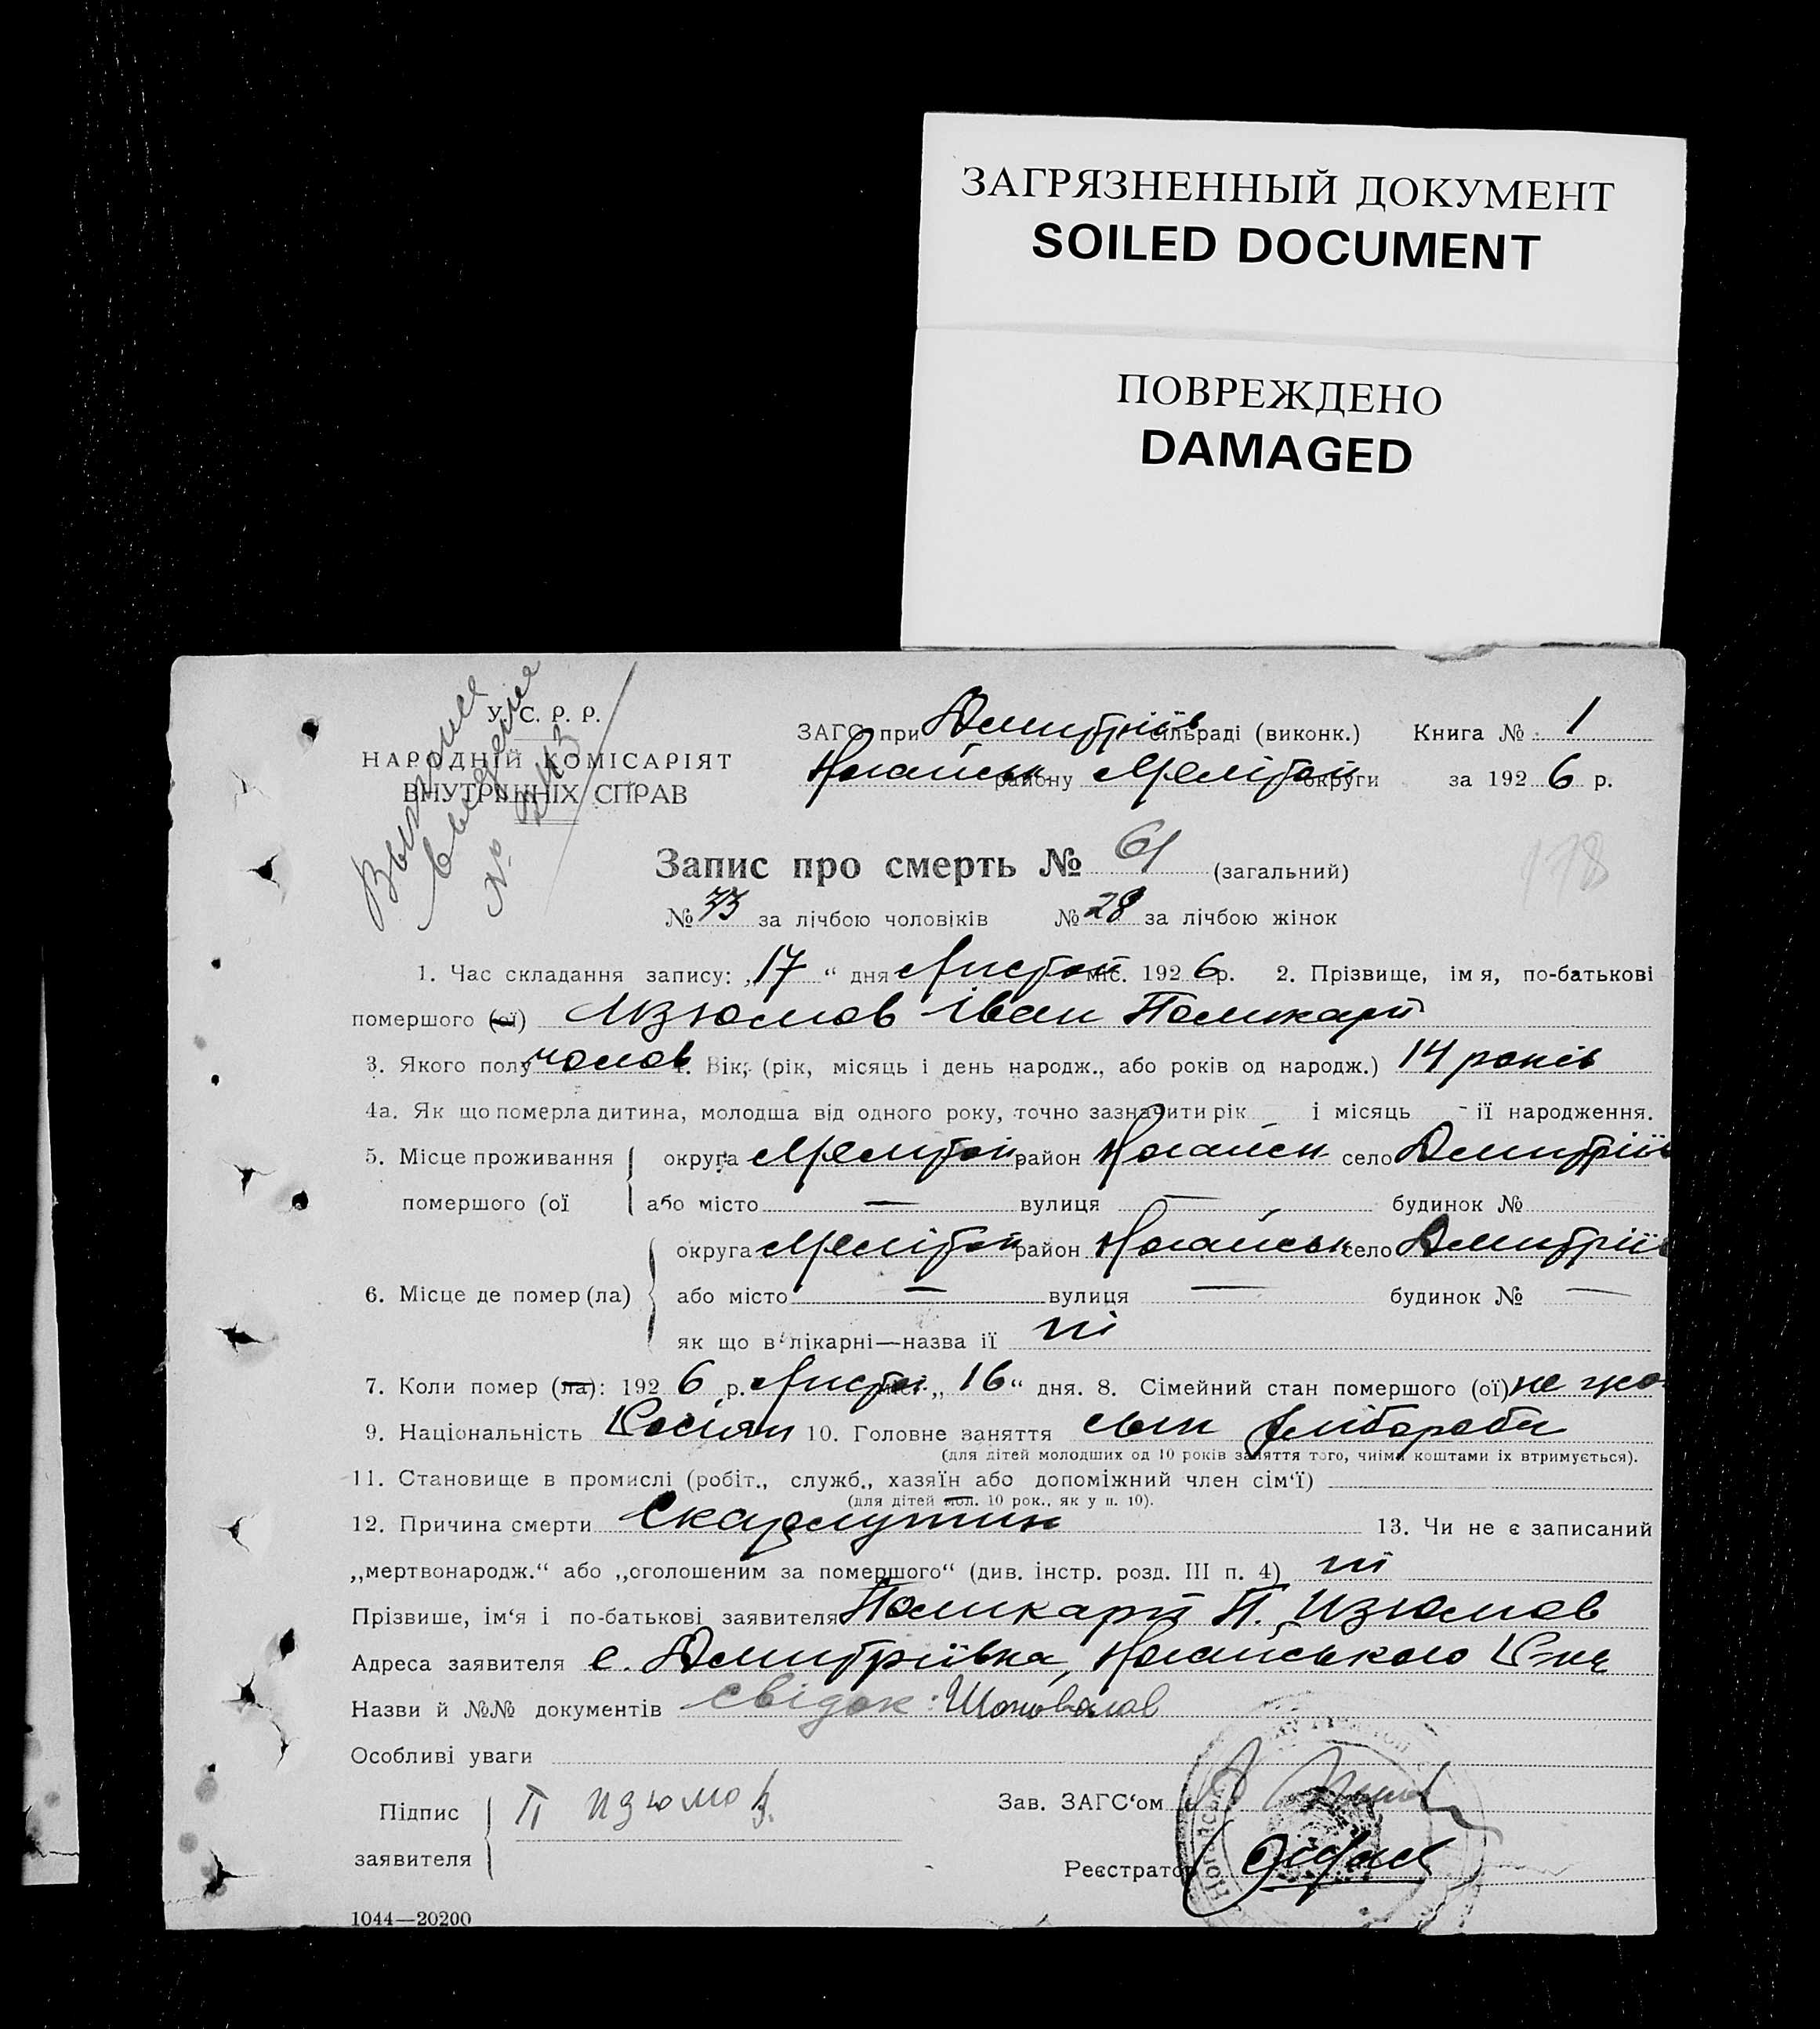 ЗАГРЯЗНЕННЫЙ ДОКУМЕНТ
SOILED DOCUMENT
ПОВРЕЖДЕНО
DAMAGED
У. С. Р. Р.
НАРОДНІЙ КОМІСАРІЯТ
ВНУТРІШНІХ СПРАВ
№
ЗАГС при Дмитріїв сільраді (виконк.) Книга № 1
Ногайськ району Мелітоп округи за 1926 р.
Запис про смерть № 61 (загальний)
178
№ 33 за лічбою чоловіків № 28 за лічбою жінок
1. Час складання запису: „17“ дня Листоп міс. 1926 р. 2. Прізвище, імя, по-батькові
помершого (ої) Изюмов Іван Поликарп
3. Якого полу чолов 4. Вік; (рік, місяць і день народж., або років од народж.) 14 років
4а. Як що померла дитина, молодша від одного року, точно зазначити рік і місяць - її народження.
5. Місце проживання округа Мелитоп район Ногайськ село Дмитріїв
помершого (ої або місто — вулиця — будинок №
округа Мелітоп район Ногайськ село Дмитріїв
6. Місце де помер (ла) або місто — вулиця — будинок № —
як що в лікарні—назва її ні
7. Коли помер (ла): 1926 р. Листоп міс. „16“ дня. 8. Сімейний стан помершого (ої) не жо
9. Національність Росіян 10. Головне заняття син хлібороба
(для дітей молодших од 10 років заняття того, чиїми коштами їх втримується).
11. Становище в промислі (робіт., служб., хазяїн або допоміжний член сім‘ї)
(для дітей мол. 10 рок., як у п. 10).
12. Причина смерти Скарлутин 13. Чи не є записаний
„мертвонародж.“ або „оголошеним за помершого“ (див. інстр. розд. III п. 4) ні
Прізвише, ім‘я і по-батькові заявителя Поликарп П. Изюмов
Адреса заявителя с. Дмитріївка, Ногайського Р-ну
Назви й №№ документів свідок: Шоповалов
Особливі уваги
Підпис заявителя П изюмов
Зав. ЗАГС‘ом
Реєстратор
1044—20200